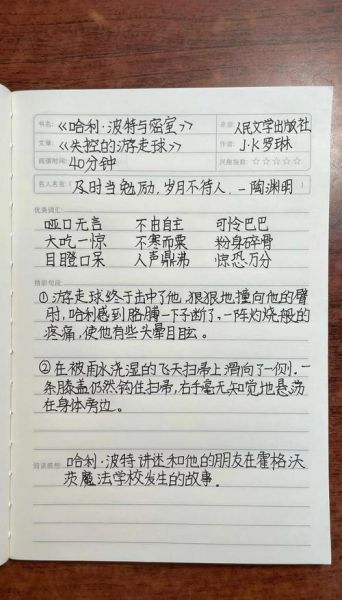 书名: 《哈利·波特与密室》 来源: 人民文学出版社
文章: 《失控的游走球》 作者: J·K罗琳
阅读时间: 40分钟 兴趣指数: ☆☆☆☆☆
名人名言: 及时当勉励,岁月不待人。-陶渊明
优美词汇:
哑口无言 不由自主 可怜巴巴
大吃一惊 不寒而栗 粉身碎骨
目瞪口呆 人声鼎沸 惊恐万分
精彩句段:
①游走球终于击中了他,狠狠地撞向他的臂
肘,哈利感到胳膊一下子断了,一阵灼烧般的
疼痛,使他有些头晕目眩。
②在被雨水浇湿的飞天扫帚上滑向了一侧,一
条膝盖仍然钩住扫帚,右手毫无知觉地悬荡
在身体旁边。
阅读感想: 哈利·波特讲述和他的朋友在霍格沃
茨魔法学校发生的故事.